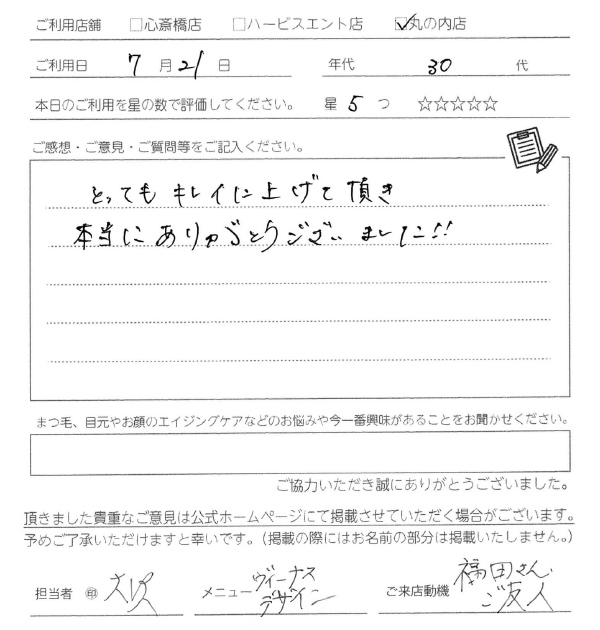 ご利用店舗 □心斎橋店 □ハービスエント店 ☑丸の内店
ご利用日 7 月 21 日 年代 30 代
本日のご利用を星の数で評価してください。 星 5 つ ☆☆☆☆☆
ご感想・ご意見・ご質問等をご記入ください。
とっても キレイに上げて頂き
本当にありがとうございました!!
まつ毛、目元やお顔のエイジングケアなどのお悩みや今一番興味があることをお聞かせください。
ご協力いただき誠にありがとうございました。
頂きました貴重なご意見は公式ホームページにて掲載させていただく場合がございます。
予めご了承いただけますと幸いです。（掲載の際にはお名前の部分は掲載いたしません。）
担当者 ㊞ メニュー ヴィーナス
デザイン
ご来店動機 福田さん
ご友人